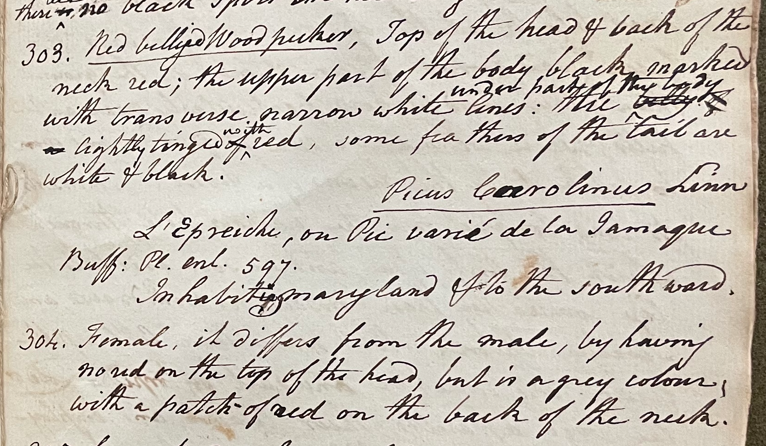 there no black spots
303. Red bellyed Woodpecker, Top of the head & back of the
neck red; the upper part of the body black marked
with transverse narrow white lines: the under part of the body
lightly tinged with red, some feathers of the tail are
white & black.
Picus Carolinus Linn
L'Epeiche, ou Pic varié de la Jamaque
Buff: Pl. enl. 597.
Inhabits maryland & to the southward.
304. Female, it differs from the male, by having
no red on the top of the head, but is a grey colour,
with a patch of red on the back of the neck.